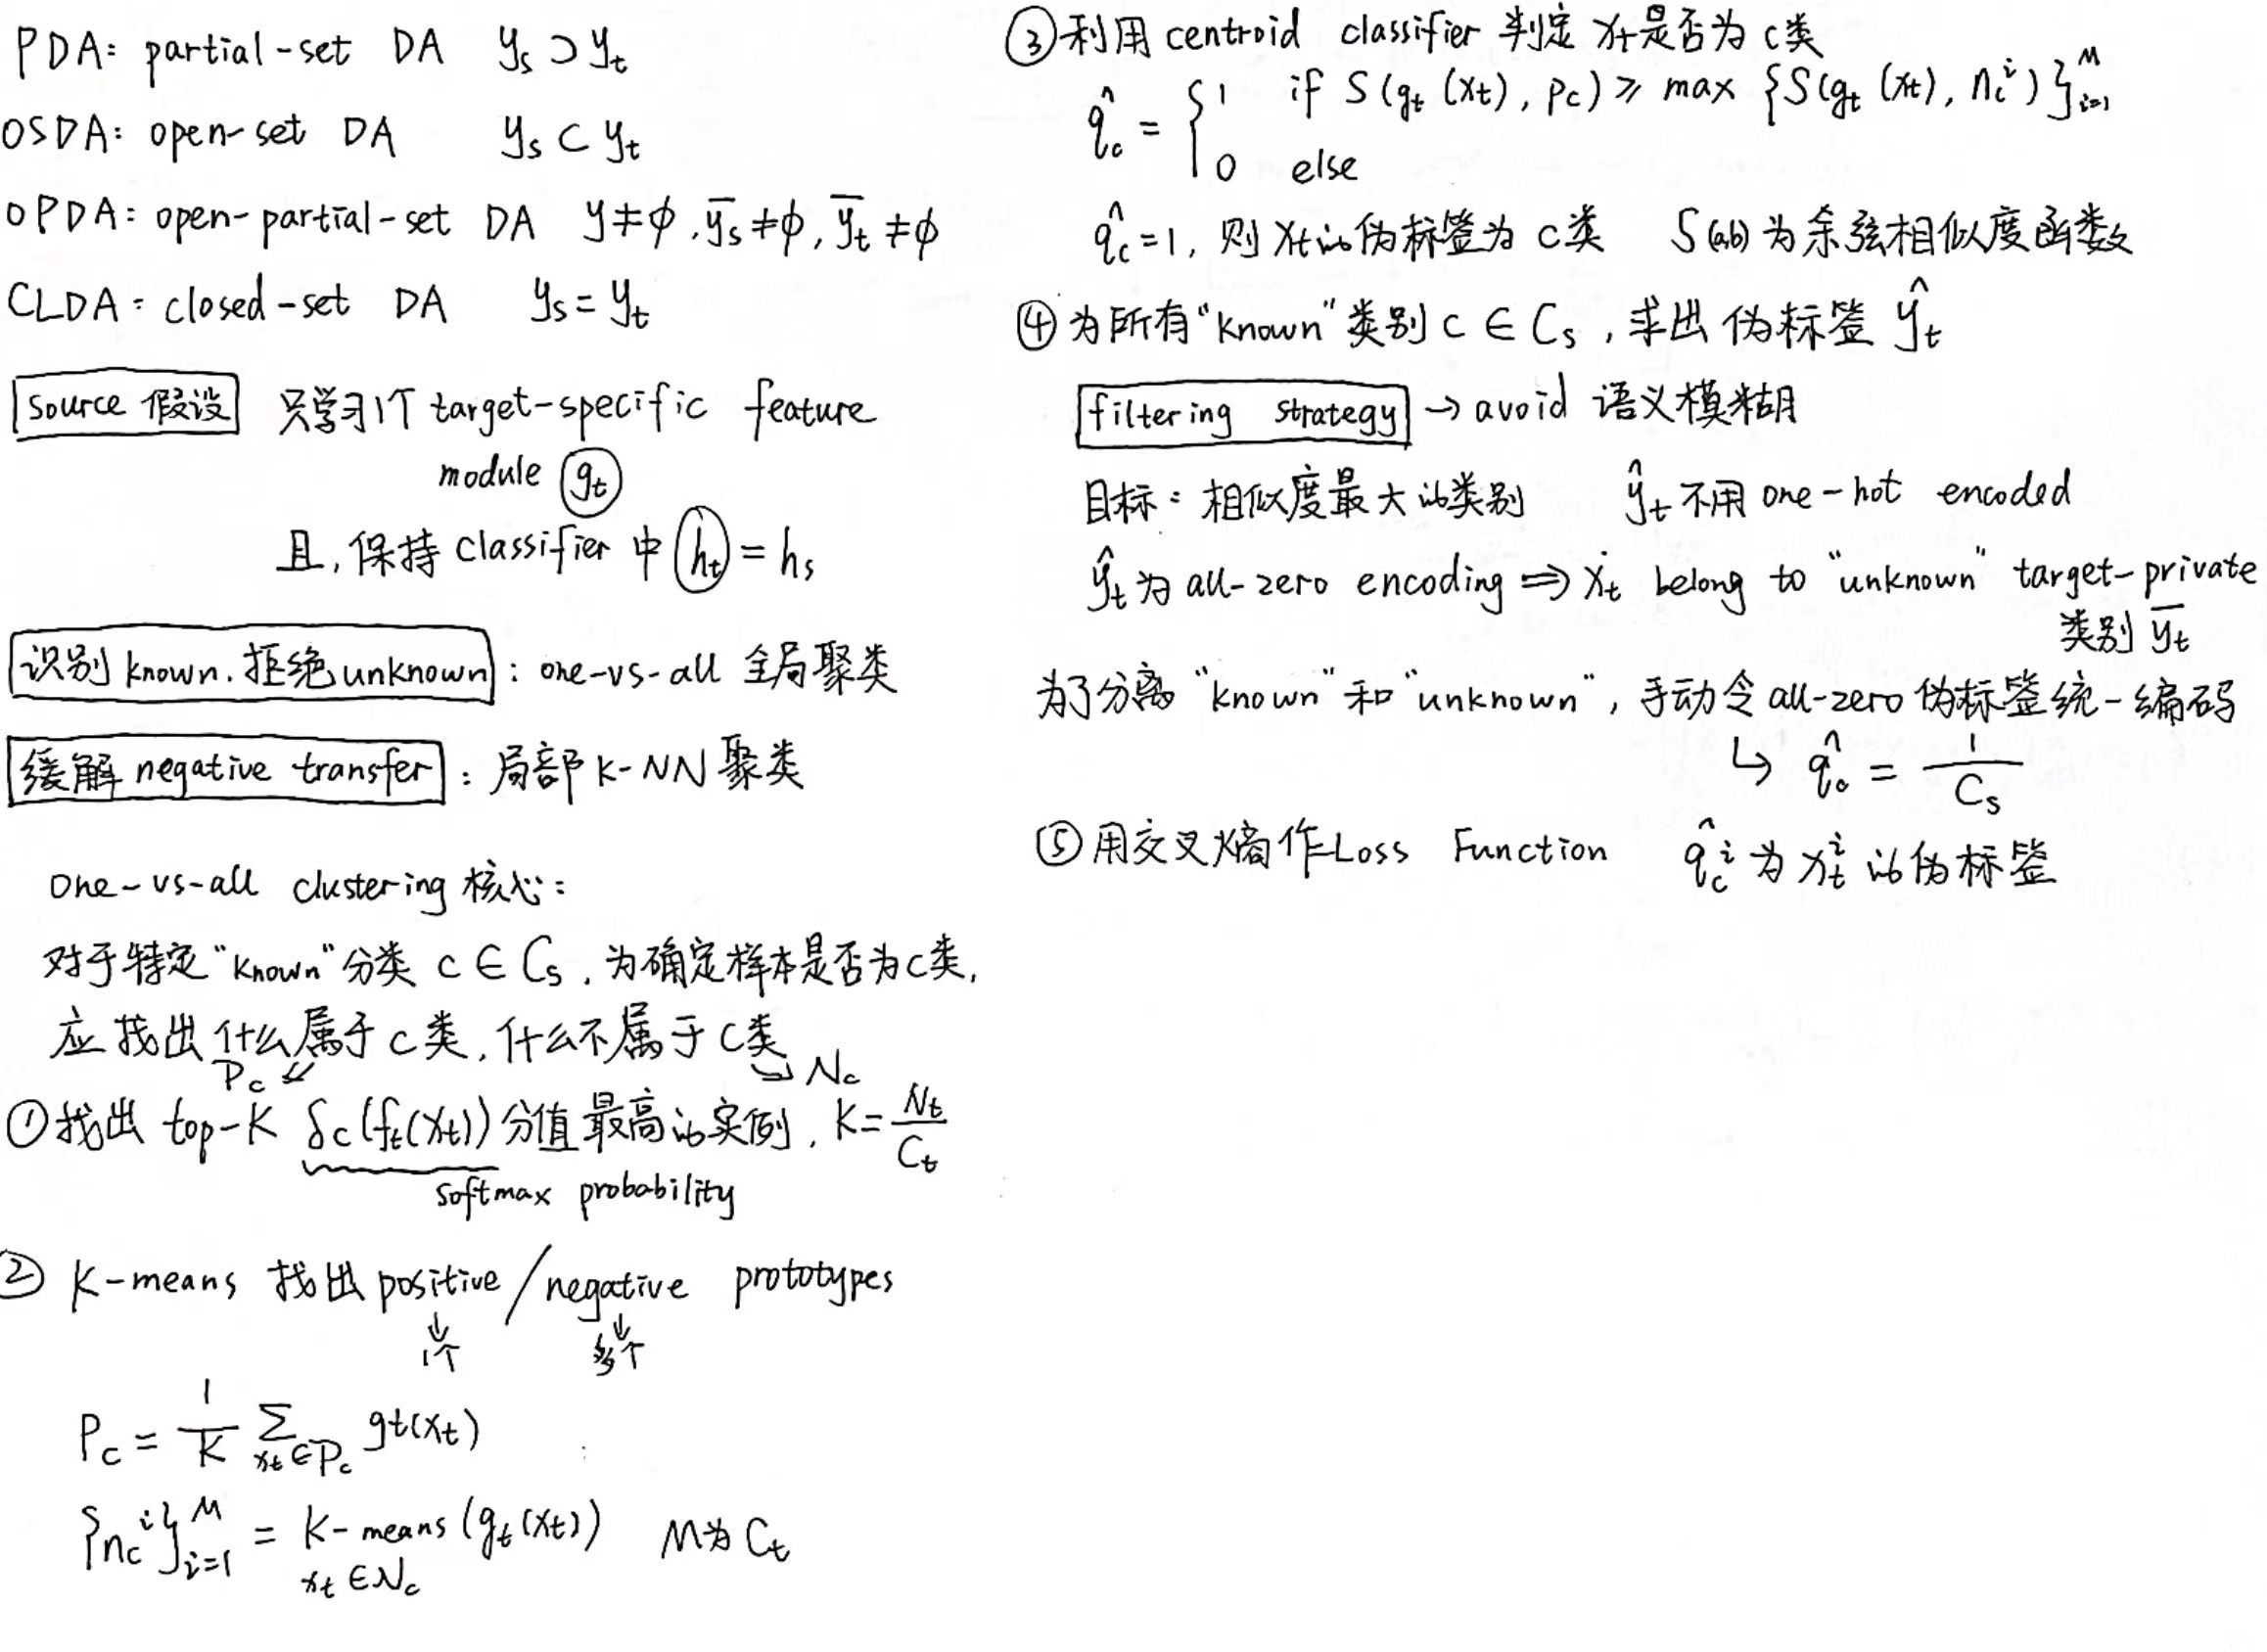 PDA: partial-set DA  y_s ⊃ y_t
OSDA: open-set DA  y_s ⊂ y_t
OPDA: open-partial-set DA  y≠ϕ, y̅_s≠ϕ, y̅_t≠ϕ
CLDA: closed-set DA  y_s = y_t
source 假设  只学习1个 target-specific feature
module g_t
且, 保持 classifier 中 h_t = h_s
识别 known. 拒绝 unknown : one-vs-all 全局聚类
缓解 negative transfer : 局部 k-NN 聚类
one-vs-all clustering 核心:
对于特定"known"分类 c ∈ C_s, 为确定样本是否为c类,
应找出什么属于c类, 什么不属于c类
P_c ↙  ↘ N_c
①找出 top-K δ_c(f_t(x_t)) 分值最高的实例, K = N_t / C_t
softmax probability
② K-means 找出 positive / negative prototypes
↓ ↓
1个 多个
P_c = 1/K ∑_{x_t∈P_c} g_t(x_t)
{n_c^i}_{i=1}^M = K-means (g_t(x_t))  M为 C_t
x_t ∈ N_c
③利用 centroid classifier 判定 x_t是否为c类
q̂_c = { 1  if S(g_t(x_t), p_c) ⩾ max {S(g_t(x_t), n_c^i)}_{i=1}^M
0  else
q̂_c = 1, 则 x_t的伪标签为 c类  S(a,b) 为余弦相似度函数
④为所有"known"类别 c ∈ C_s, 求出 伪标签 ŷ_t
filtering strategy → avoid 语义模糊
目标: 相似度最大的类别  ŷ_t 不用 one-hot encoded
ŷ_t 为 all-zero encoding ⇒ x_t belong to "unknown" target-private
类别 y̅_t
为了分离 "known" 和 "unknown", 手动令 all-zero 伪标签统一编码
↳ q̂_c = 1 / C_s
⑤用交叉熵作Loss Function  q̂_c^i 为 x_t^i 的伪标签